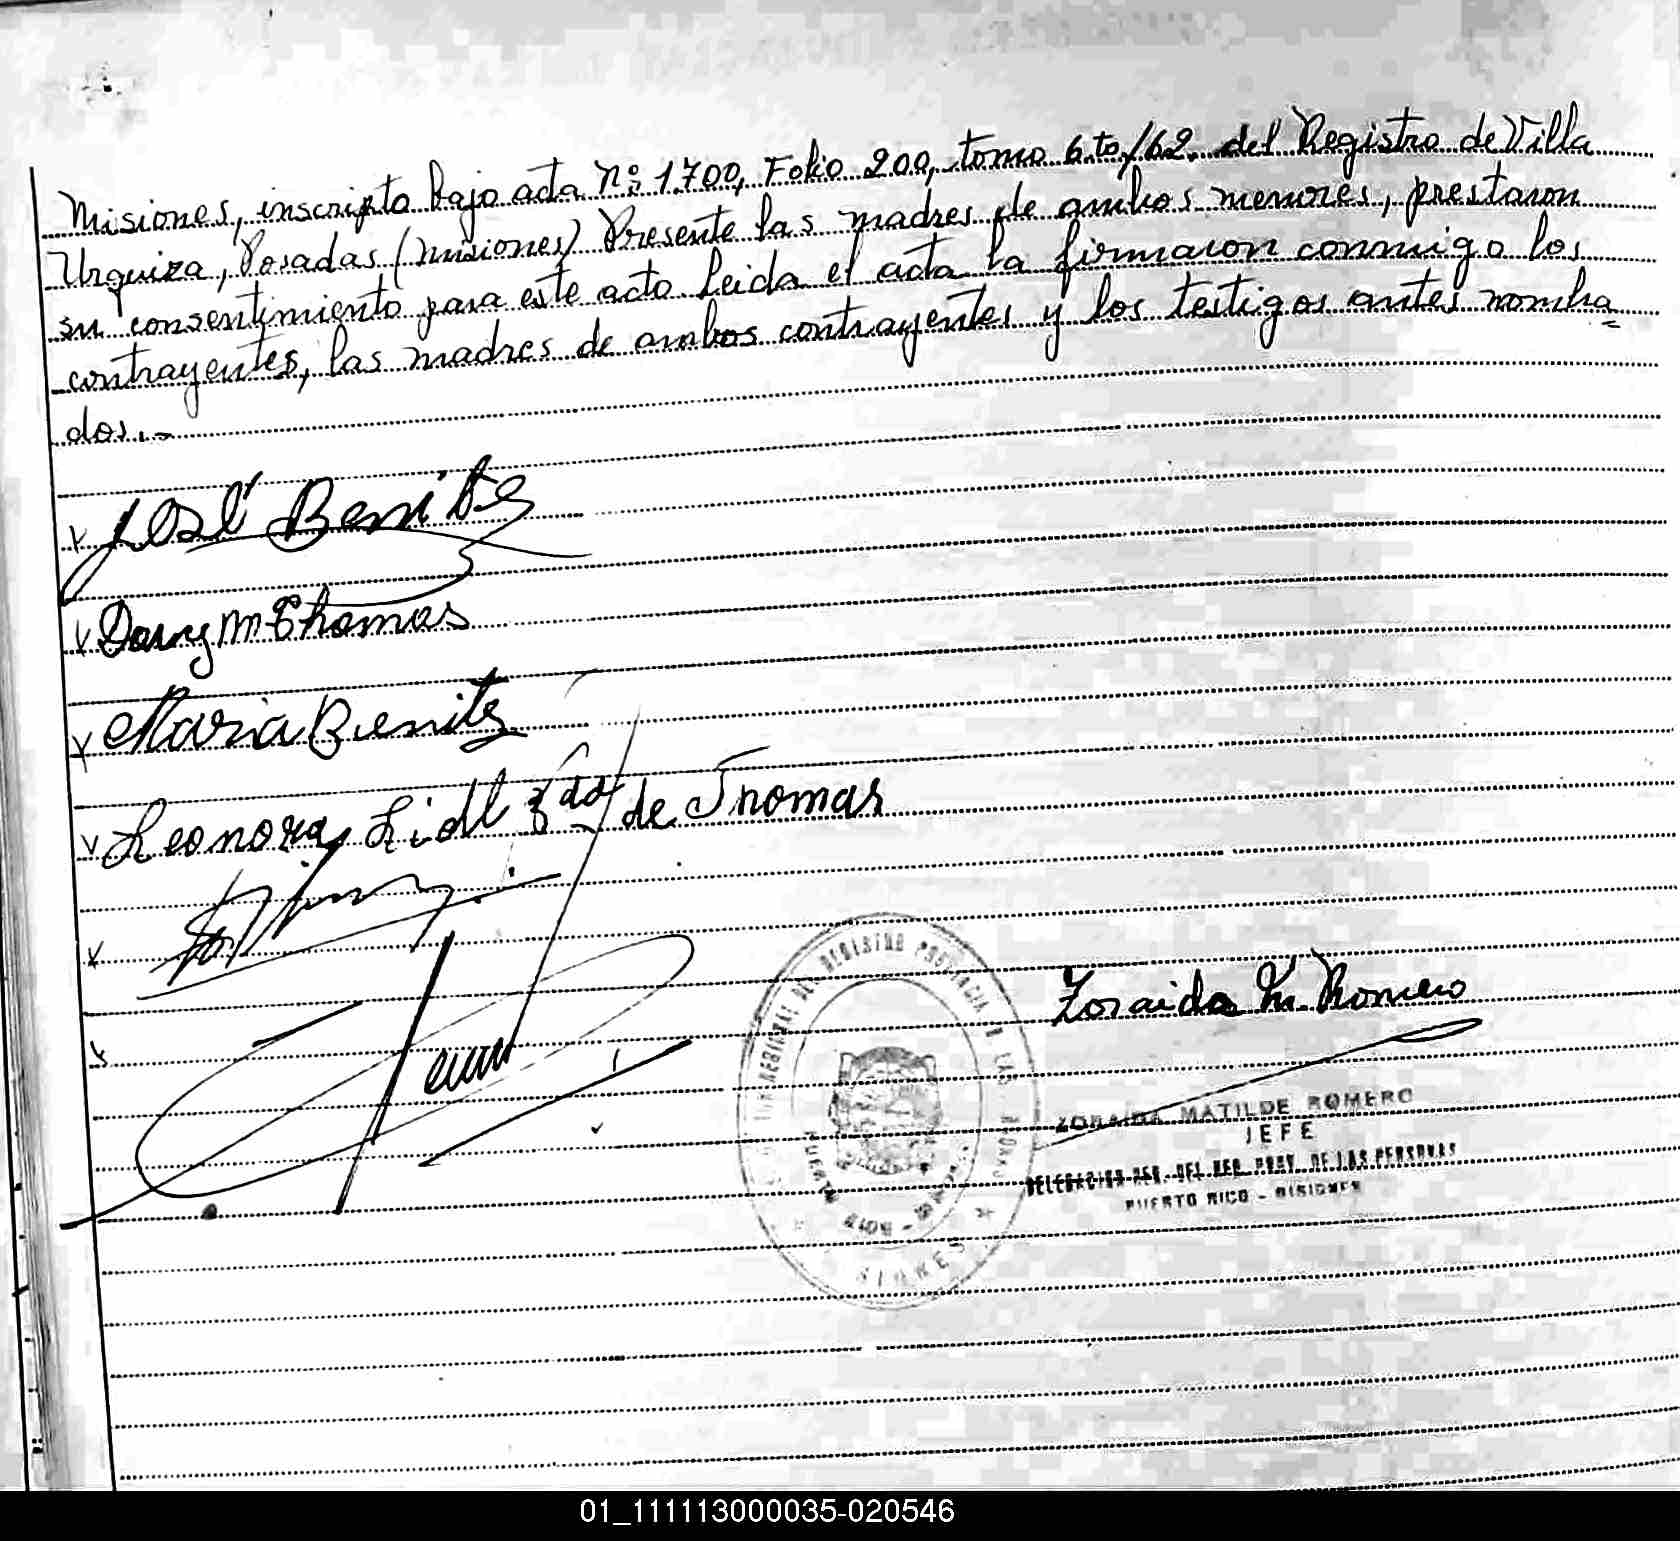 Misiones, inscripto bajo acta nº 1.700, Folio 200, tomo 6to/62 del Registro de Villa
Urquiza, Posadas (Misiones) Presente las madres de ambos menores, prestaron
su consentimiento para este acto Leida el acta la firmaron conmigo los
contrayentes, las madres de ambos contrayentes y los testigos antes nombra=
dos.-
José Benitez
Dary M Thomas
Maria Benitez
Leonora Lidl Vda de Thomas
Zoraida M. Romero
ZORAIDA MATILDE ROMERO
JEFE
DELEGACION REG. DEL REG. PROV. DE LAS PERSONAS
PUERTO RICO - MISIONES
01_111113000035-020546